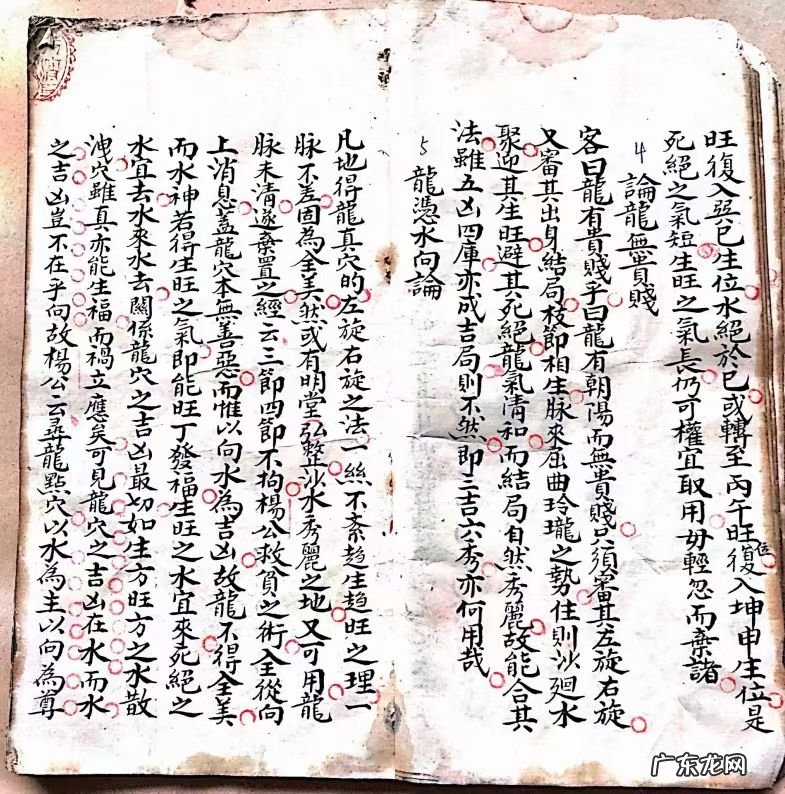 旺復入巽巳生位水絕於巳或轉至丙午旺位復入坤申生位是
死絕之氣短生旺之氣長仍可權宜取用毋輕忽而棄諸
4 論龍無貴賤
客曰龍有貴賤乎曰龍有朝陽而無貴賤只須審其左旋右旋
又審其出身結局枝節相生脉來屈曲玲瓏之勢住則沙迴水
聚迎其生旺避其死絕龍氣清和而結局自然秀麗故能合其
法雖五凶四庫亦成吉局則不然即三吉六秀亦何用哉
5 龍憑水向論
凡地得龍真穴的左旋右旋之法一絲不紊趋生趋旺之理一
脉不差固為全美然或有明堂弘整沙水秀麗之地又可用龍
脉未清遂棄置之經云三節四節不拘楊公救貧之術全從向
上消息蓋龍穴本無善惡而惟以向水為吉凶故龍不得全美
而水神若得生旺之氣即能旺丁發福生旺之水宜來死絕之
水宜去水來水去關係龍穴之吉凶最切如生方旺方之水散
洩穴雖真亦能生福而禍立應矣可見龍穴之吉凶在水而水
之吉凶豈不在乎向故楊公云尋龍點穴以水為主以向為尊
广东龙网